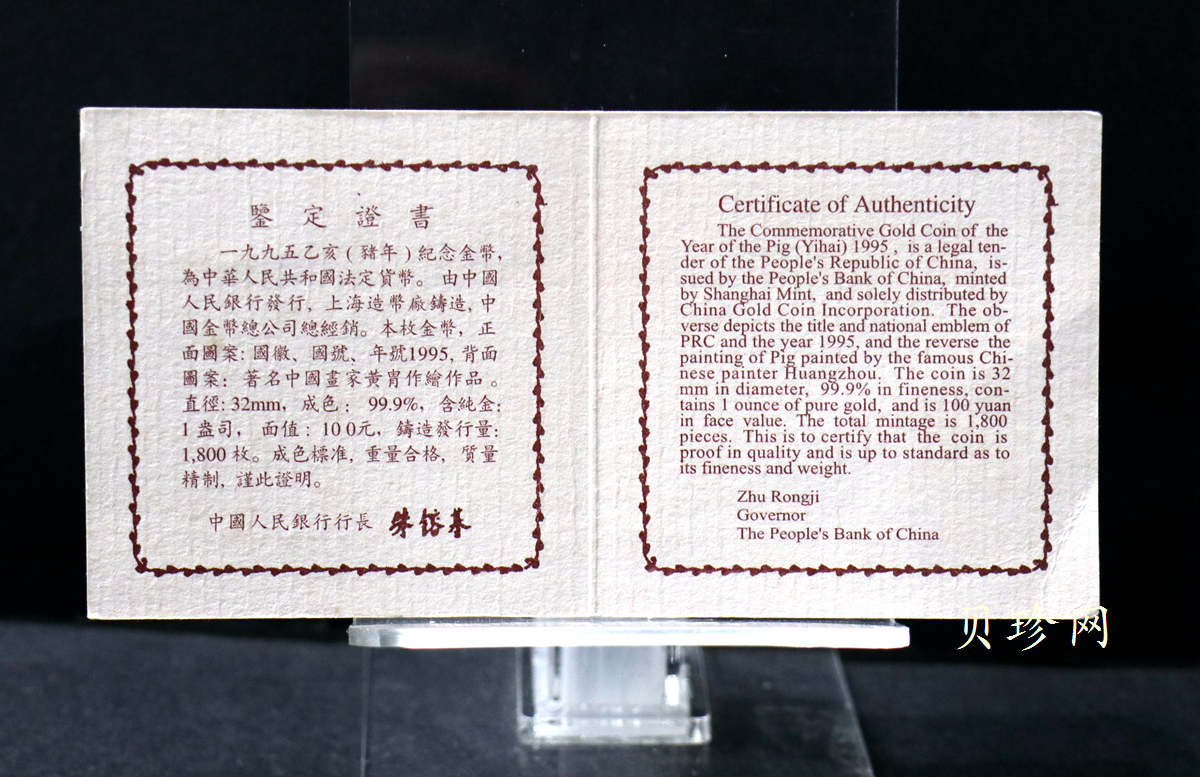 鑒定證書
一九九五乙亥(豬年)紀念金幣,
為中華人民共和國法定貨幣。由中國
人民銀行發行, 上海造幣廠鑄造, 中
國金幣總公司總經銷。本枚金幣, 正
面圖案: 國徽、國號、年號1995, 背面
圖案: 著名中國畫家黃胄作繪作品。
直徑: 32mm, 成色: 99.9%, 含純金:
1 盎司, 面值: 10 0元, 鑄造發行量:
1,800 枚。成色標准, 重量合格, 質量
精制, 謹此證明。
中國人民銀行行長 朱鎔基
Certificate of Authenticity
The Commemorative Gold Coin of the
Year of the Pig (Yihai) 1995 , is a legal ten-
der of the People's Republic of China, is-
sued by the People's Bank of China, minted
by Shanghai Mint, and solely distributed by
China Gold Coin Incorporation. The ob-
verse depicts the title and national emblem of
PRC and the year 1995, and the reverse the
painting of Pig painted by the famous Chi-
nese painter Huangzhou. The coin is 32
mm in diameter, 99.9% in fineness, con-
tains 1 ounce of pure gold, and is 100 yuan
in face value. The total mintage is 1,800
pieces. This is to certify that the coin is
proof in quality and is up to standard as to
its fineness and weight.
Zhu Rongji
Governor
The People's Bank of China
贝珍网